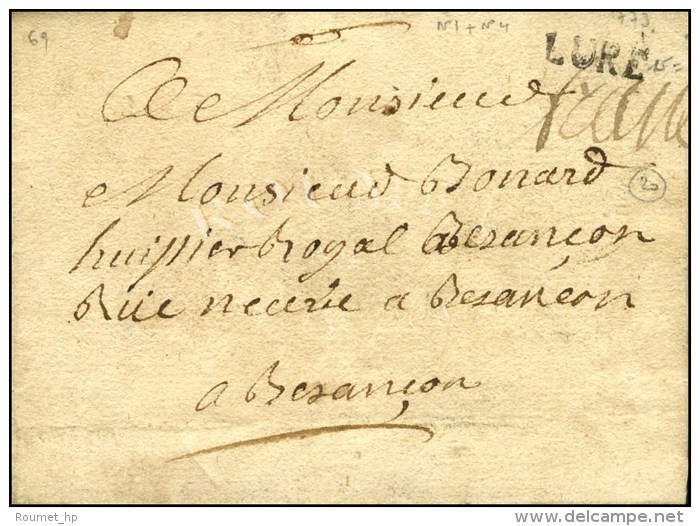 69
N°1 + N°4
773
LURE
A Monsieur
Monsieur Bonard
20
huissier Royal a Besançon
Rüe neuve a Besançon
a Besançon
Roumet_hp
www.delcampe.net